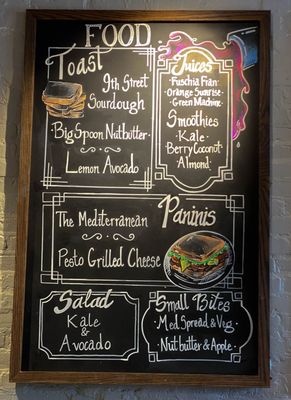 FOOD
Toast
9th Street
Sourdough
·Big Spoon Nutbutter·
Lemon Avocado
Juices
·Fuschia Fran·
·Orange Sunrise·
·Green Machine·
Smoothies
·Kale·
·Berry Coconut·
·Almond·
Paninis
The Mediterranean
Pesto Grilled Cheese
Salad
Kale
&
Avocado
Small Bites
·Med Spread & Veg·
·Nut butter & Apple·